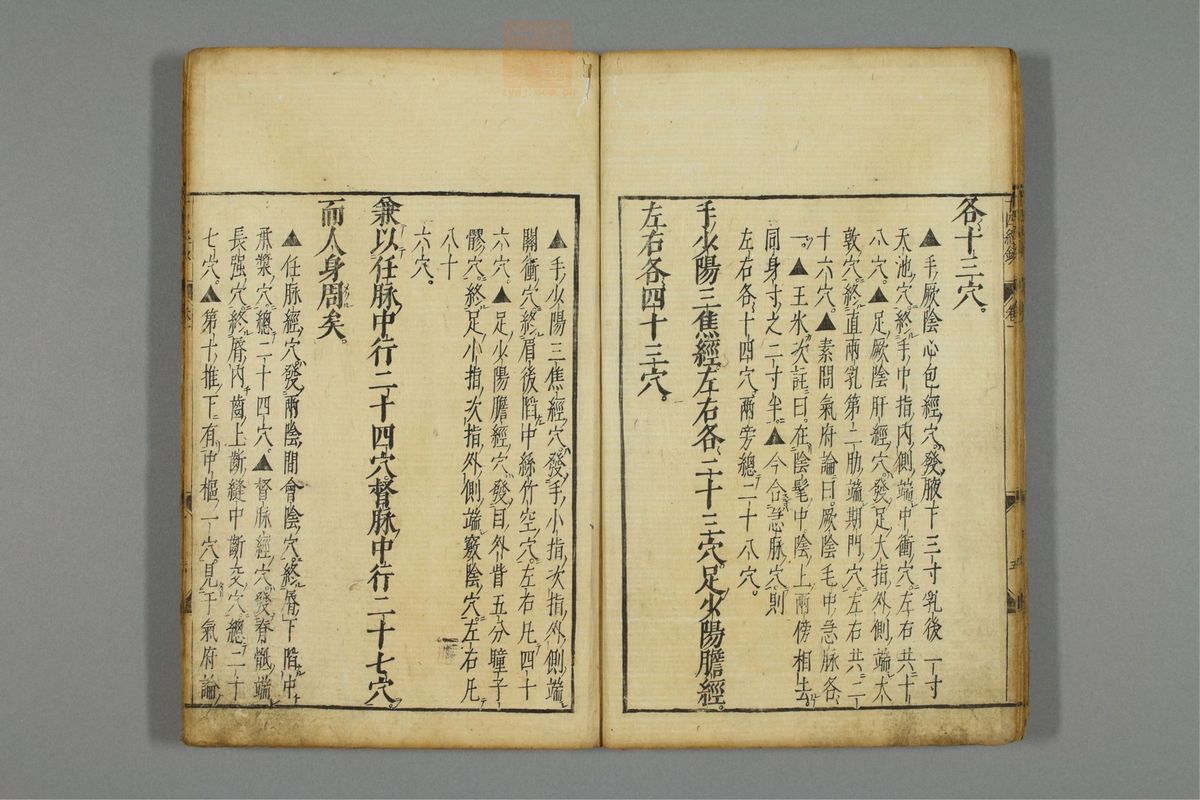 各十三穴。
▲手厥陰心包經穴發腋下三寸乳後一寸
天池穴終手中指內側端中衝穴左右共十
八穴。▲足厥陰肝經穴發足大指外側端大
敦穴終直兩乳第二肋端期門穴左右共二
十六穴。▲素問氣府論曰厥陰毛中急脉各
一。▲王氷次註曰在陰髦中陰上兩傍相去
同身寸之二寸半。▲今合急脉穴則
左右各十四穴兩旁總二十八穴。
手少陽三焦經左右各二十三穴足少陽膽經。
左右各四十三穴。
▲手少陽三焦經穴發手小指次指外側端
關衝穴終眉後陷中絲竹空穴左右凡四十
六穴。▲足少陽膽經穴發目外眥五分瞳子
髎穴終足小指次指外側端竅陰穴左右凡
八十
六穴。
兼以任脉中行二十四穴督脉中行二十七穴。
而人身周矣。
▲任脉經穴發兩陰間會陰穴終脣下陷中
承漿穴總二十四穴。▲督脉經穴發脊骶端
長强穴終脣內齒上齗縫中齗交穴總二十
七穴。▲第十推下有中樞一穴見于氣府論